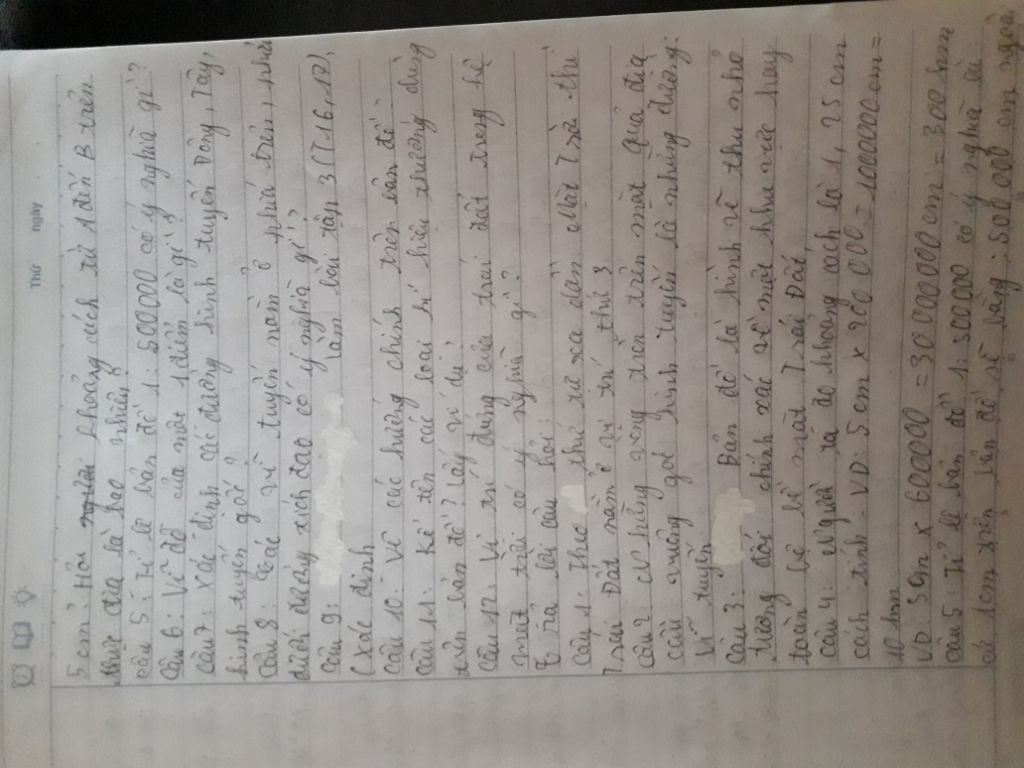 Thứ ngày
5 cm? Hỏi khoảng cách từ A đến B trên
thực địa là bao nhiêu?
câu 5: Tỉ lệ bản đồ 1: 500000 có ý nghĩa gì?
Câu 6: Vĩ độ của một điểm là gì?
Câu 7: Xác định các đường kinh tuyến Đông, Tây,
kinh tuyến gốc?
Câu 8: Các vĩ tuyến nằm ở phía trên, phía
dưới đường xích đạo có ý nghĩa gì?
Câu 9: làm bài tập 3 (T16, 17)
(xác định
Câu 10: Vẽ các hướng chính trên bản đồ:
Câu 11: Kể tên các loại kí hiệu thường dùng
trên bản đồ? Lấy ví dụ?
Câu 12: Vị trí đúng của trái đất trong hệ
mặt trời có ý nghĩa gì?
Trả lời câu hỏi:
Câu 1: Theo thứ tự xa dần Mặt Trời thì
Trái Đất nằm ở vị trí thứ 3
câu 2: Những vòng tròn trên mặt quả địa
cầu vuông góc kinh tuyến là những đường
Vĩ tuyến
Câu 3: Bản đồ là hình vẽ thu nhỏ
tương đối chính xác về một khu vực hay
toàn bộ bề mặt Trái Đất
câu 4: Người ta đo khoảng cách là 1,25 cm
cách tính: VD: 5 cm x 200 000 = 1000000 cm =
10 km
VD: 5cm x 600000 = 30000000 cm = 300 km
Câu 5: Tỉ lệ bản đồ 1: 500000 có ý nghĩa là:
cứ 1cm trên bản đồ sẽ bằng: 500 000 cm ngoài